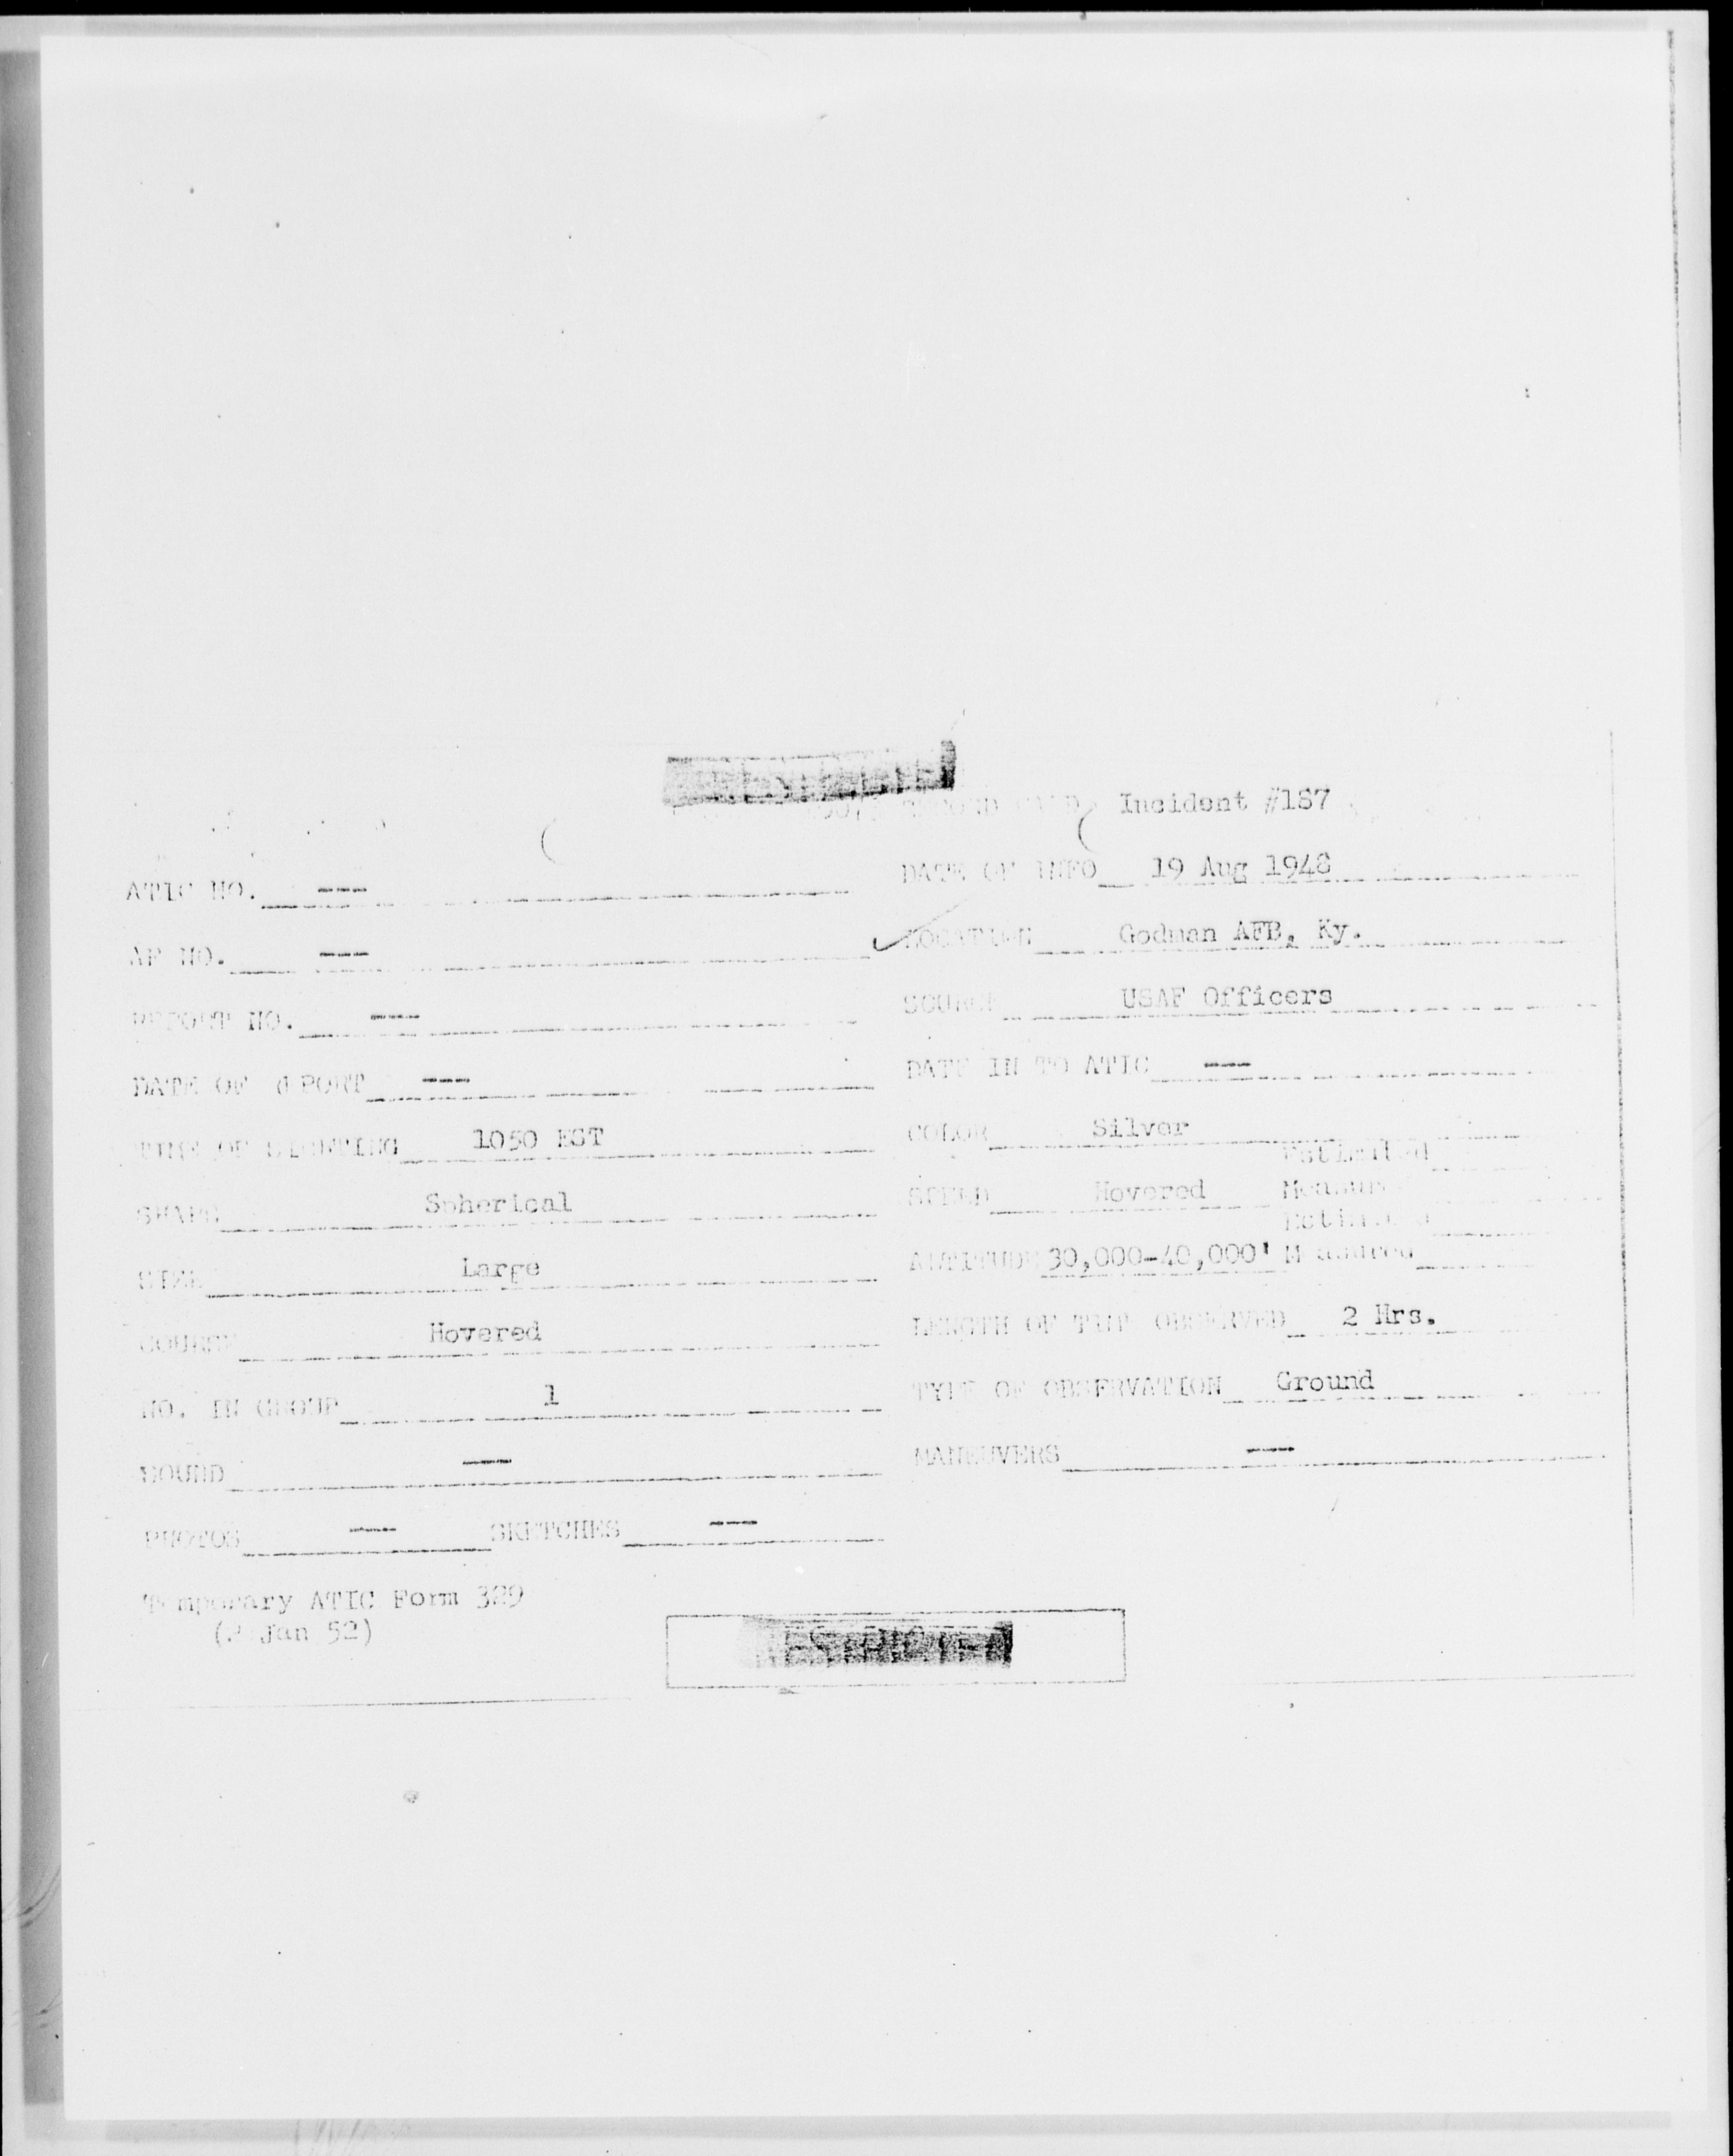 Incident #187
ATIC NO. --- DATE OF INFO 19 Aug 1948
AF NO. --- LOCATION Godman AFB, Ky.
REPORT NO. --- SOURCE USAF Officers
DATE OF REPORT --- DATE IN TO ATIC ---
TIME OF SIGHTING 1050 EST COLOR Silver
SHAPE Spherical SPEED Hovered Estimated Measured
SIZE Large ALTITUDE 30,000-40,000' Estimated Measured
COURSE Hovered LENGTH OF TIME OBSERVED 2 Hrs.
NO. IN GROUP 1 TYPE OF OBSERVATION Ground
SOUND --- MANEUVERS ---
PHOTOS --- SKETCHES ---
Temporary ATIC Form 329
Jan 52)
RESTRICTED